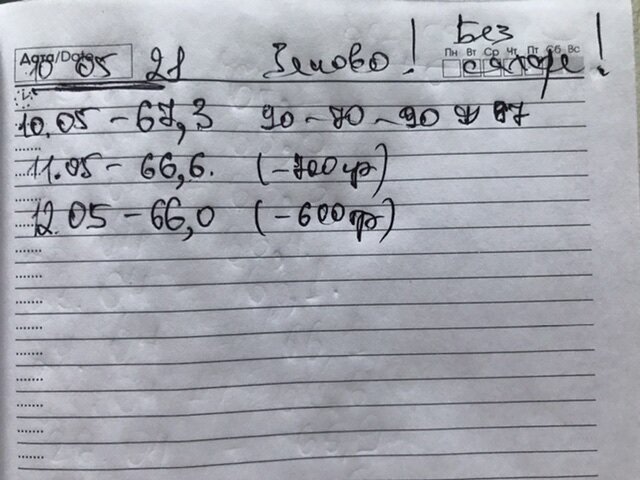 Без
Дата/Date Заново! Пн Вт Ср Чт Пт Сб Вс
10 05 21
10.05 - 67,3 90 - 70 - 90
11.05 - 66,6. (-700гр)
12.05 - 66,0 (-600гр)